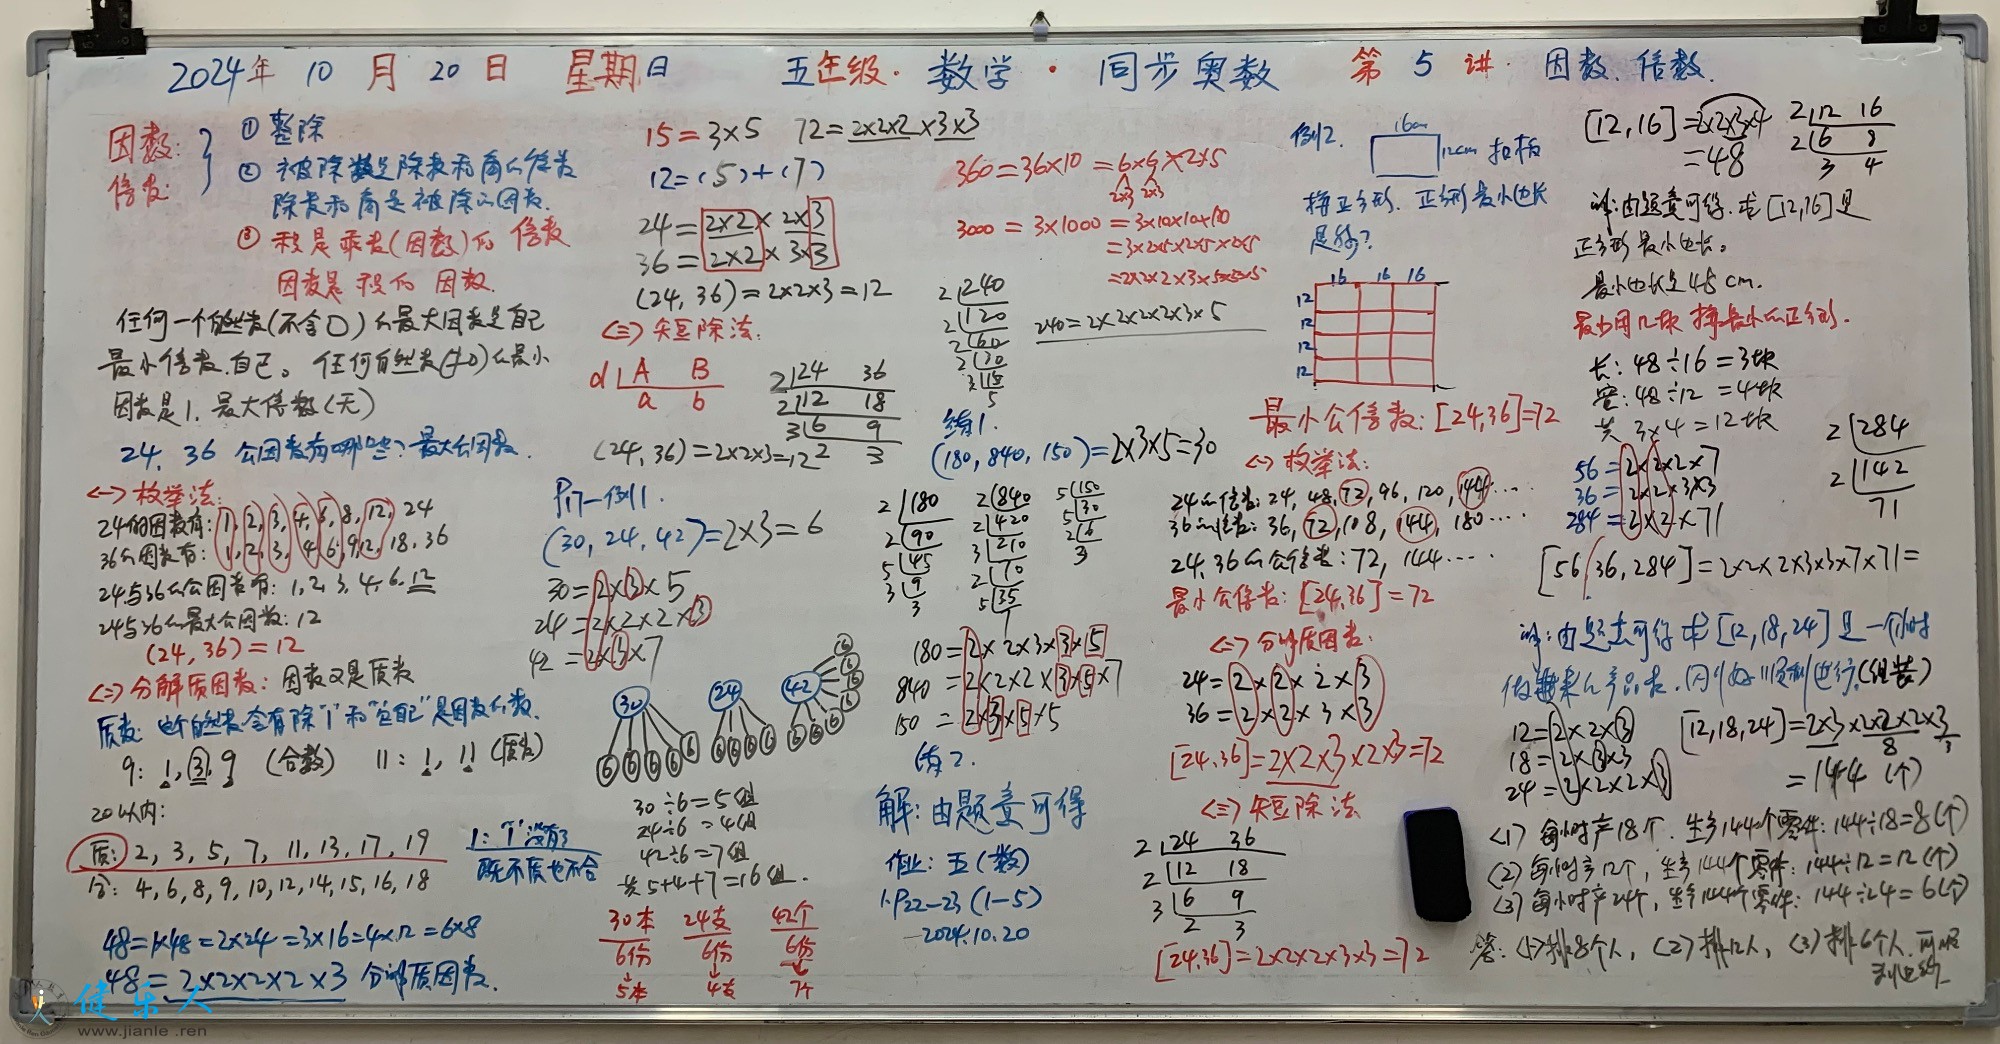 2024年 10 月 20 日 星期日 五年级·数学·同步奥数 第 5 讲 因数、倍数.
因数:
倍数:
① 整除
② 被除数是除数和商的倍数
除数和商是被除的因数.
③ 积是乘数(因数)的 倍数
因数是 积的 因数.
任何一个自然数(不含0)的最大因数是自己
最小倍数.自己。任何自然数(≠0)的最小
因数是1. 最大倍数(无)
24, 36 公因数有哪些?最大公因数.
<一> 枚举法:
24的因数有: 1, 2, 3, 4, 6, 8, 12, 24
36的因数有: 1, 2, 3, 4, 6, 9, 12, 18, 36
24与36的公因数有: 1, 2, 3, 4, 6, 12
24与36的最大公因数: 12
(24, 36) = 12
<二> 分解质因数: 因数又是质数
9: 1, 3, 9 (合数) 11: 1, 11 (质数)
20以内:
质: 2, 3, 5, 7, 11, 13, 17, 19
合: 4, 6, 8, 9, 10, 12, 14, 15, 16, 18
1: "1" 没有了
既不质也不合
48=1×48=2×24=3×16=4×12=6×8
48=2×2×2×2×3 分解质因数.
15=3×5 72=2×2×2×3×3
12=(5)+(7)
24=2×2×2×3
36=2×2×3×3
(24, 36)=2×2×3=12
<三> 短除法:
d A B
a b
2 24 36
2 12 18
3 6 9
2 3
(24, 36)=2×2×3=12
P17-例1.
(30, 24, 42)=2×3=6
30=2×3×5
24=2×2×2×3
42=2×3×7
30 24 42
6 6 6 6 6 6 6 6 6 6 6 6 6 6 6 6
30÷6=5组
24÷6=4组
42÷6=7组
共5+4+7=16组.
30本 24支 42个
6份 6份 6份
5本 4支 7个
360=36×10=6×6×2×5
2×3 2×3
3000=3×1000=3×10×10×10
=3×2×5×2×5×2×5
=2×2×2×3×5×5×5
2 240
2 120
2 60
2 30
3 15
5
240=2×2×2×2×3×5
练1.
(180, 840, 150)=2×3×5=30
2 180
2 90
5 45
3 9
3
2 840
2 420
3 210
2 70
5 35
7
5 150
5 30
2 6
3
180=2×2×3×3×5
840=2×2×2×3×5×7
150=2×3×5×5
练2.
解: 由题意可得
作业: 五(数)
1. P22-23 (1-5)
2024.10.20
例2. 16cm 12cm 扣板
拼正方形. 正方形最小边长
是多少?
16 16 16
12
12
12
12
最小公倍数: [24,36]=72
<一> 枚举法:
24的倍数: 24, 48, 72, 96, 120, 144……
36的倍数: 36, 72, 108, 144, 180……
24, 36的公倍数: 72, 144……
最小公倍数: [24,36]=72
<二> 分解质因数:
24=2×2×2×3
36=2×2×3×3
[24,36]=2×2×3×2×3=72
<三> 短除法
2 24 36
2 12 18
3 6 9
2 3
[24,36]=2×2×2×3×3=72
[12,16]=2×2×3×4
=48
2 12 16
2 6 8
3 4
解: 由题意可得. 求[12,16]是
正方形最小边长。
最小边长是48cm.
最少用几块 拼最小的正方形.
长: 48÷16=3块
宽: 48÷12=4块
共 3×4=12块
56=2×2×2×7
36=2×2×3×3
284=2×2×71
2 284
2 142
71
[56, 36, 284]=2×2×2×3×3×7×71=
解: 由题意可得 求[12,18,24]是一个小时
12=2×2×3
18=2×3×3
24=2×2×2×3
[12,18,24]=2×3×2×2×2×3
8 3
=144 (个)
<1> 每小时产18个. 生产144个零件: 144÷18=8(个)
<2> 每小时产12个, 生产144个零件: 144÷12=12(个)
<3> 每小时产24个, 生产144个零件: 144÷24=6(个)
答: <1>排8个人, <2>排12人, <3>排6个人.
健乐人
www.jianle.ren